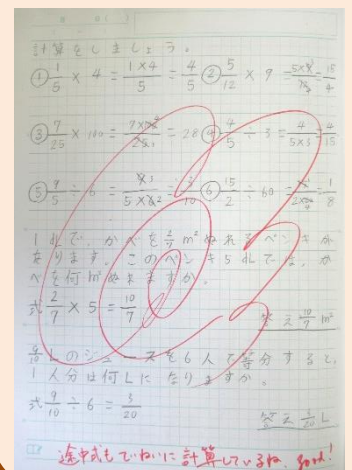 計算をしましょう。
① 1/5 × 4 = 1×4/5 = 4/5 ② 5/12 × 9 = 5×9/12 = 15/4
③ 7/25 × 100 = 7×100/25 = 28 ④ 4/5 ÷ 3 = 4/5×3 = 4/15
⑤ 9/5 ÷ 6 = 9/5×6 = 3/10 ⑥ 15/2 ÷ 60 = 15/2×60 = 1/8
1dLで、かべを2/7m²ぬれるペンキが
あります。このペンキ5dLでは、か
べを何m²ぬれますか。
式 2/7 × 5 = 10/7
答え 10/7 m²
9/10 Lのジュースを6人で等分すると、
1人分は何Lになりますか。
式 9/10 ÷ 6 = 3/20
答え 3/20 L
途中式もていねいに計算しているね。Good!